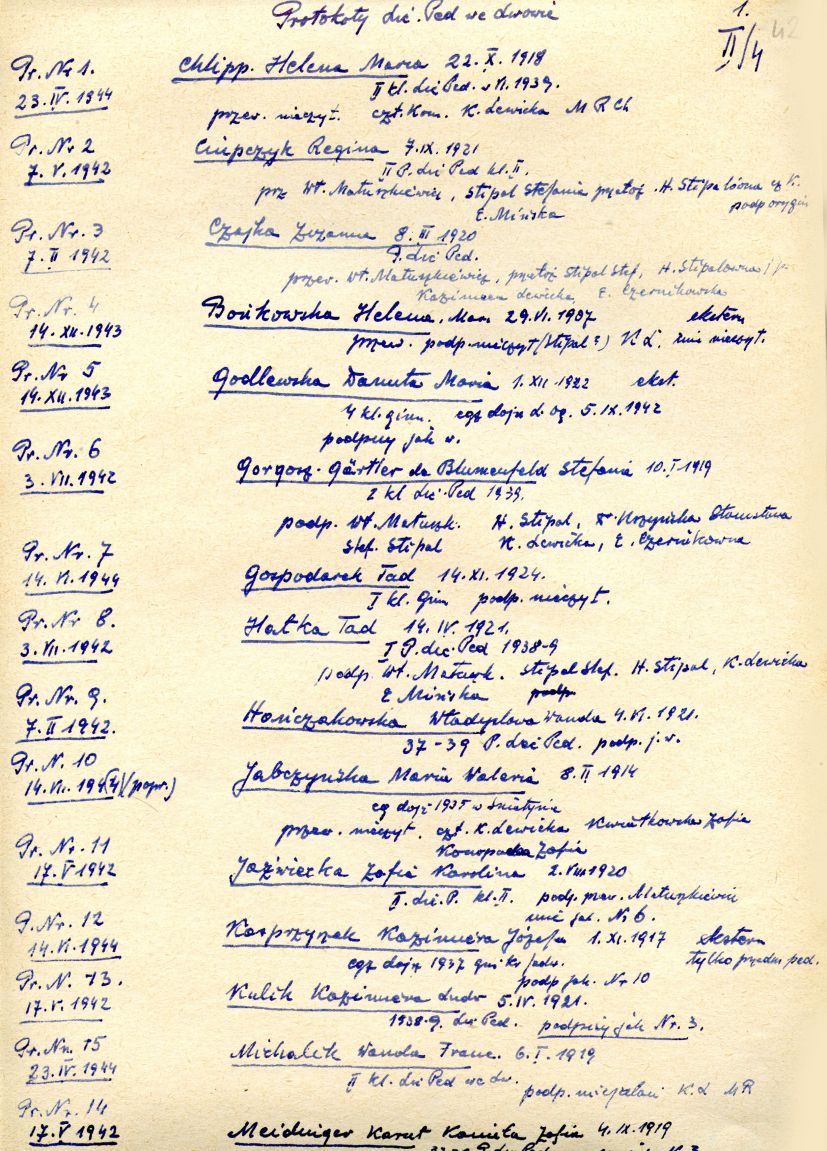 Protokoły Lic. Ped we Lwowie
1.
II/4
42
Pr. Nr 1. Chlipp. Helena Maria 22. X. 1918
23. IV. 1944 II kl. Lic Ped. w VI. 1939.
przew. nieczyt. czł. Kom. K. Lewicka M R Ch
Pr. Nr 2 Regina 7. IX. 1921
7. V. 1942 II P. Lic Ped kl. II.
prz Wł. Matuszkiewicz, Stipal Stefania H. Stipalówna
E. Mińska podp
Pr. Nr. 3 Czajka Zuzanna 8. III 1920
7. II 1942 P. Lic Ped.
przew. Wł. Matuszkiewicz, Stipal Stef, H. Stipalówna
Kazimiera Lewicka, E. Czernikowska
Pr. Nr. 4 Bońkowska Helena, Mar. 29. VI. 1907 ekstern
14. XII. 1943 przew. podp. nieczyt (Stipal?) K L. nieczyt.
Pr. Nr 5 Godlewska Danuta Maria 1. XII 1922 ekst.
14. XII. 1943 4 kl. gimn. egz dojrz 5. IX. 1942
podpisy jak w.
Pr. Nr. 6 Gorgosz-Gärtler de Blumenfeld Stefania 10. I 1919
3. VII. 1942 2 kl Lic Ped 1939.
podp. Wł. Matuszk. H. Stipal, Stanisława
Stef. Stipal K. Lewicka, E. Czernikowna
Pr. Nr. 7 Gospodarek Tad 14. XI. 1924.
14. VI. 1944 I kl. Gim podp. nieczyt.
Pr. Nr 8. Hałka Tad 14. IV. 1921.
3. VII. 1942 I P. Lic. Ped 1938-9
podp Wł. Matuszk. Stipal Stef. H. Stipal, K. Lewicka
E Mińska podp
Pr. Nr. 9. Hończakowska Władysława Wanda 4. VI. 1921.
7. II 1942. 37-39 P. Lic Ped. podp. j. w.
Pr. N. 10 Jabczyńska Maria Waleria 8. II 1914
14. VI. 194(4) (popr.) eg dojrz 1935 w Śniatynie
przew. nieczyt. czł. K. Lewicka Kwiatkowska Zofia
Zofia
Pr. Nr. 11 Jaźwiecka Zofia Karolina 2. VIII 1920
17. V 1942 II. Lic. P. kl. II. podp. przew. Matuszkiewicz
inni jak Nr 6.
P. Nr. 12 Kasprzynek Kazimiera Józefa 1. XI. 1917 ekstern
14. VI. 1944 egz dojrz 1937 tylko przedm ped.
podp jak. Nr 10
Pr. N. 13. Kulik Kazimiera Ludw 5. IV. 1921.
17. V. 1942 1938-9. Lic Ped. podpisy jak Nr. 3.
Pr. Nr. 15 Michalik Wanda Franc. 6. I. 1919
23. IV. 1944 II kl. Lic Ped we Lw.
podp. K. L MR
Pr. Nr. 14 Meidinger Karut Kamila Zofia 4. IX. 1919
17. V 1942